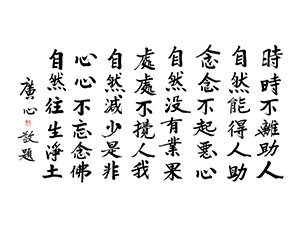 時時不離助人
自然能得人助
念念不起惡心
自然没有業果
處處不攪人我
自然減少是非
心心不忘念佛
自然往生淨土
廣心敬題